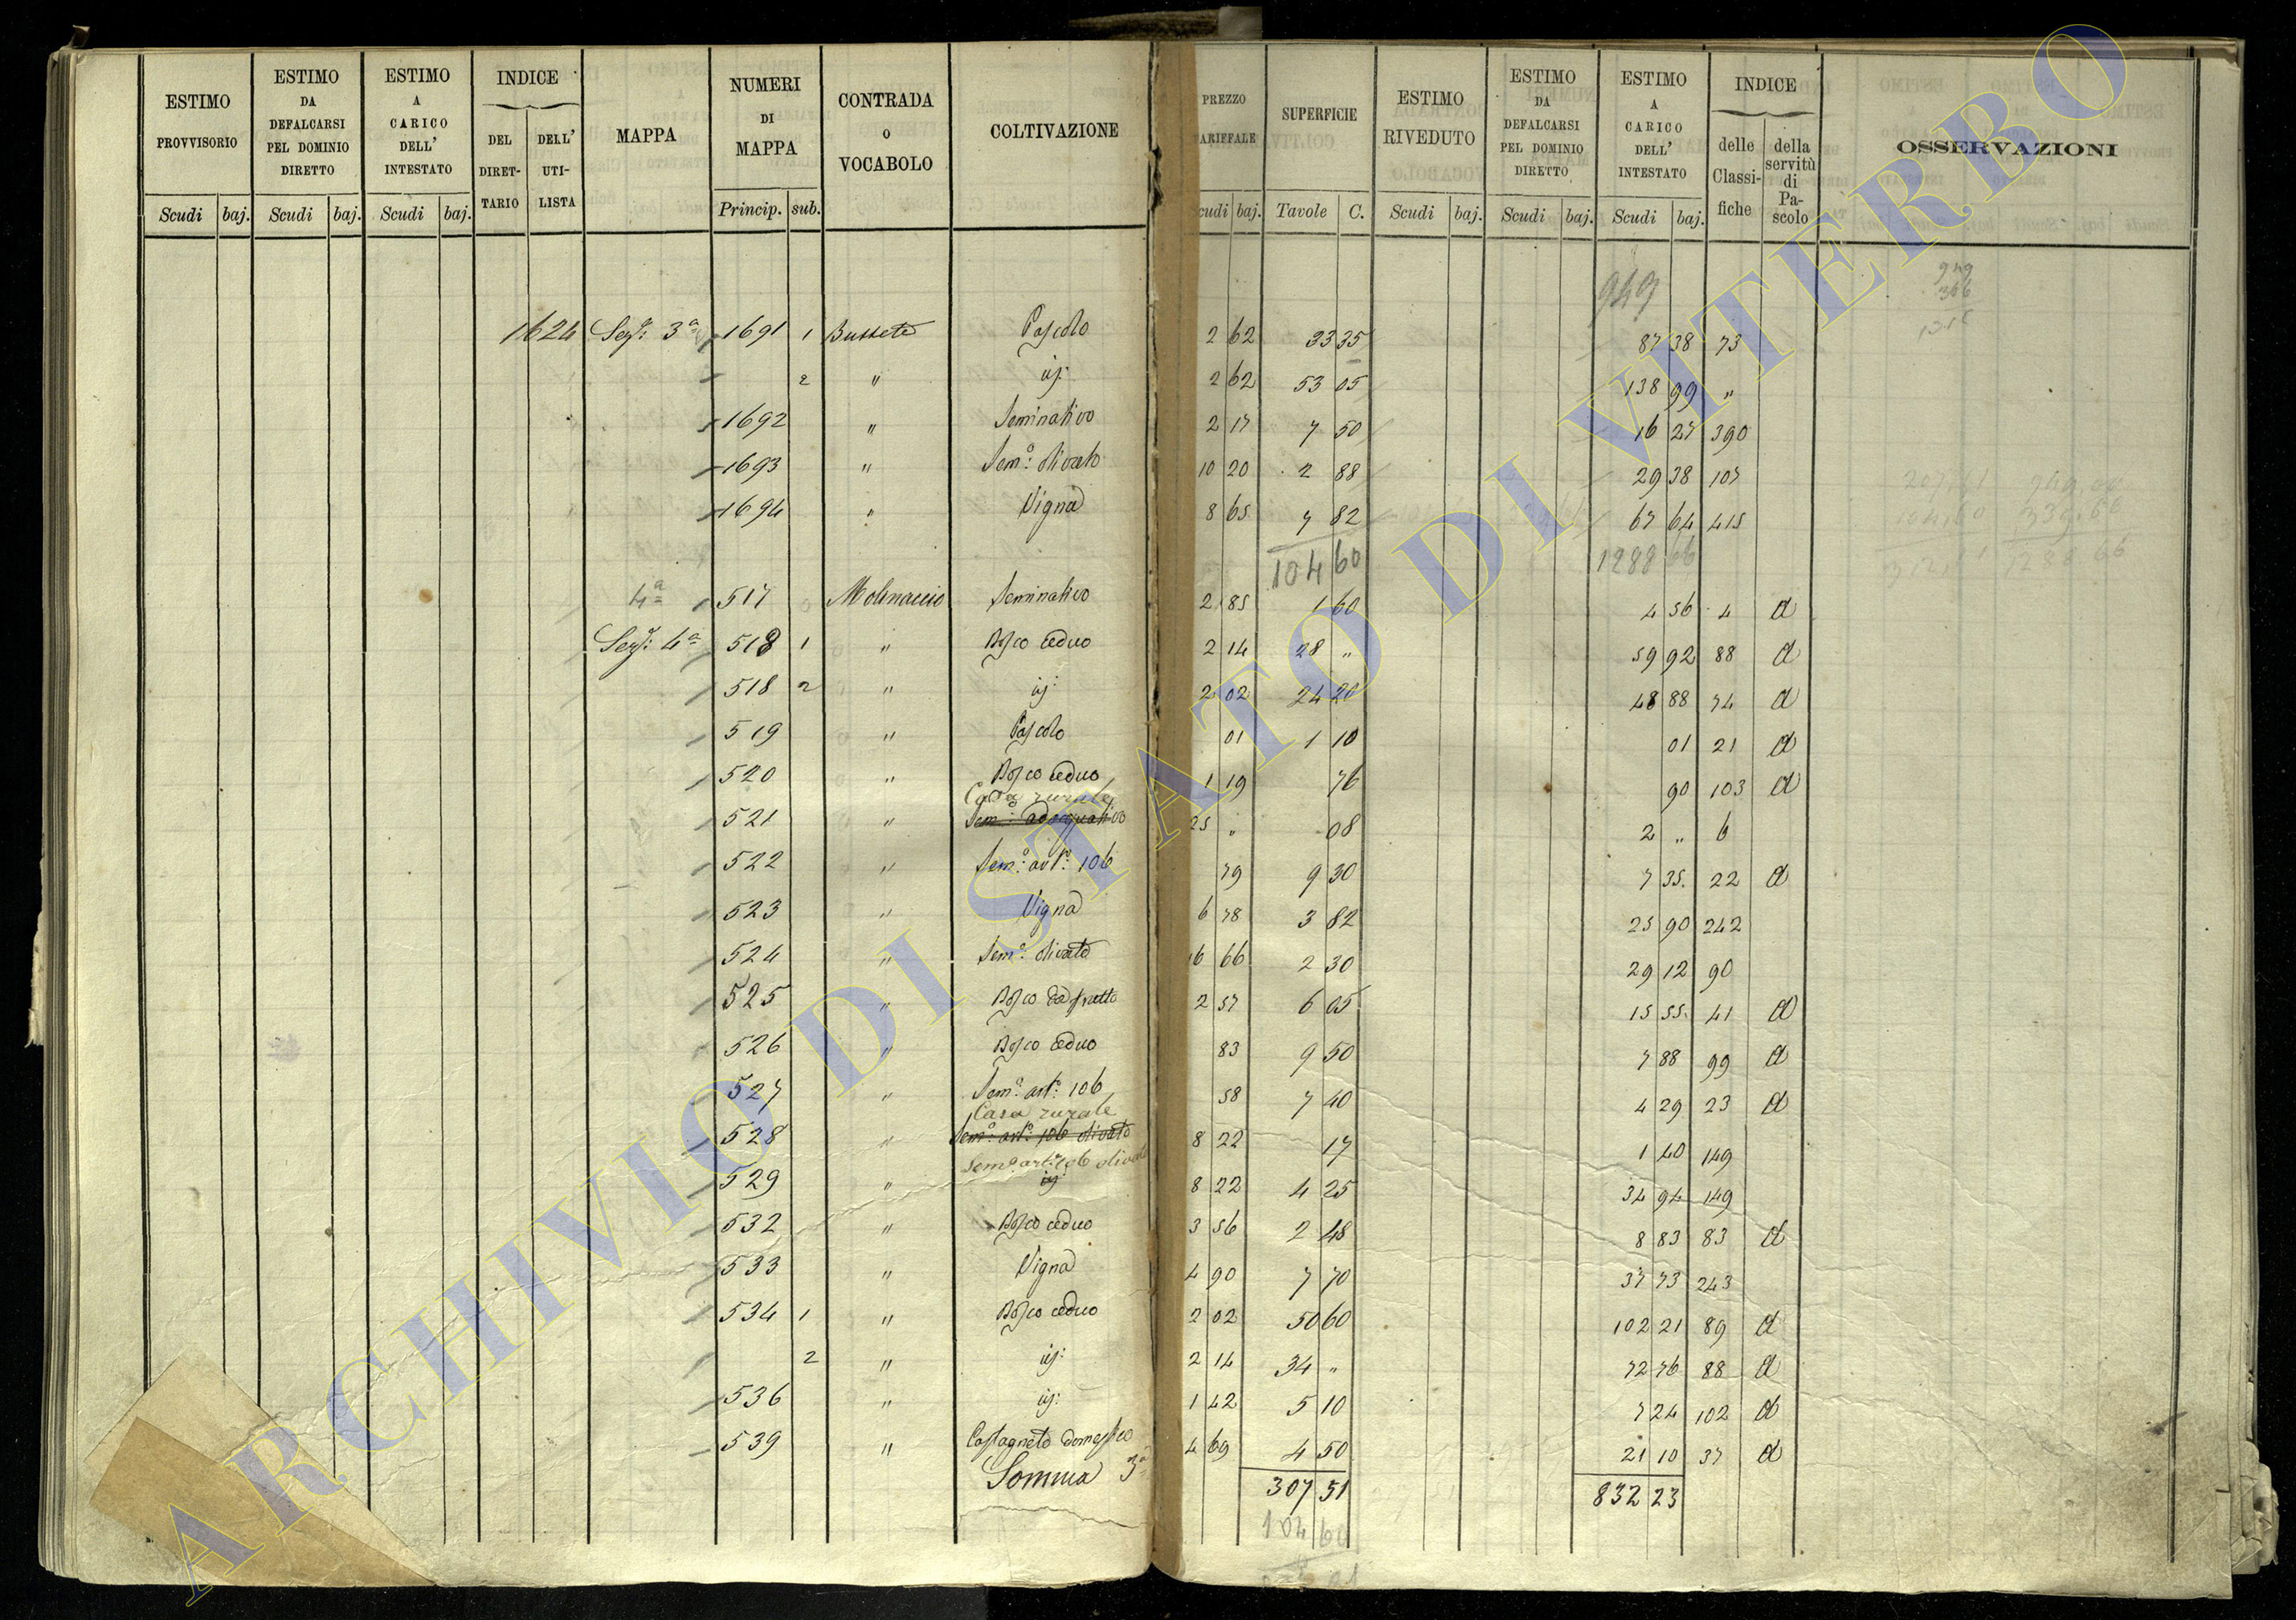 ESTIMO PROVVISORIO | ESTIMO DA DEFALCARSI PEL DOMINIO DIRETTO | ESTIMO A CARICO DELL' INTESTATO | INDICE DEL DIRET- TARIO | DELL' UTI- LISTA | MAPPA | NUMERI DI MAPPA | CONTRADA O VOCABOLO | COLTIVAZIONE | PREZZO ARIFFALE | SUPERFICIE | ESTIMO RIVEDUTO | ESTIMO DA DEFALCARSI PEL DOMINIO DIRETTO | ESTIMO A CARICO DELL' INTESTATO | INDICE delle Classi- fiche | della servitù di Pa- scolo | OSSERVAZIONI
Scudi baj. Scudi baj. Scudi baj. Princip. sub. cudi baj. Tavole C. Scudi baj. Scudi baj. Scudi baj.
943 949
366
1624 Sezе: 3ª 1691 1 Bussete Pascolo 2 62 33 35 87 38 73
2 " id: 2 62 53 05 138 99 "
1692 " Seminativo 2 17 7 50 16 27 390
1693 " Sem:º olivato 10 20 2 88 29 38 107
1694 " Vigna 8 65 7 82 67 64 415
104 60 1288 66
4ª 517 Molinaccio Seminativo 2 85 1 60 4 56 4 d
Sezе: 4ª 518 1 " Bosco ceduo 2 14 28 " 59 92 88 d
518 2 " id: 2 02 24 20 48 88 74 d
519 " Pascolo 01 1 10 01 21 d
520 " Bosco ceduo 1 19 76 90 103 d
Casa rurale
521 " Sem:º adacquativo 25 " 08 2 " 6
522 " Sem:º art:º 106 79 9 30 7 35 22 d
523 " Vigna 6 78 3 82 25 90 242
524 " Sem:º olivato 16 66 2 30 29 12 90
525 " Bosco da frutto 2 57 6 05 15 55 41 d
526 " Bosco ceduo 83 9 50 7 88 99 d
527 " Sem:º art:º 106 58 7 40 4 29 23 d
Casa rurale
528 " Sem:º art:º 106 olivato 8 22 17 1 40 149
Sem:º art:º 106 olivato
529 " id: 8 22 4 25 34 94 149
532 " Bosco ceduo 3 56 2 48 8 83 83 d
533 " Vigna 4 90 7 70 37 73 243
534 1 " Bosco ceduo 2 02 50 60 102 21 89 d
2 " id: 2 14 34 " 72 76 88 d
536 " id: 1 42 5 10 7 24 102 d
539 " Castagneto domestico 4 69 4 50 21 10 37 d
Somma 3ª 307 51 832 23
104 60
ARCHIVIO DI STATO DI VITERBO